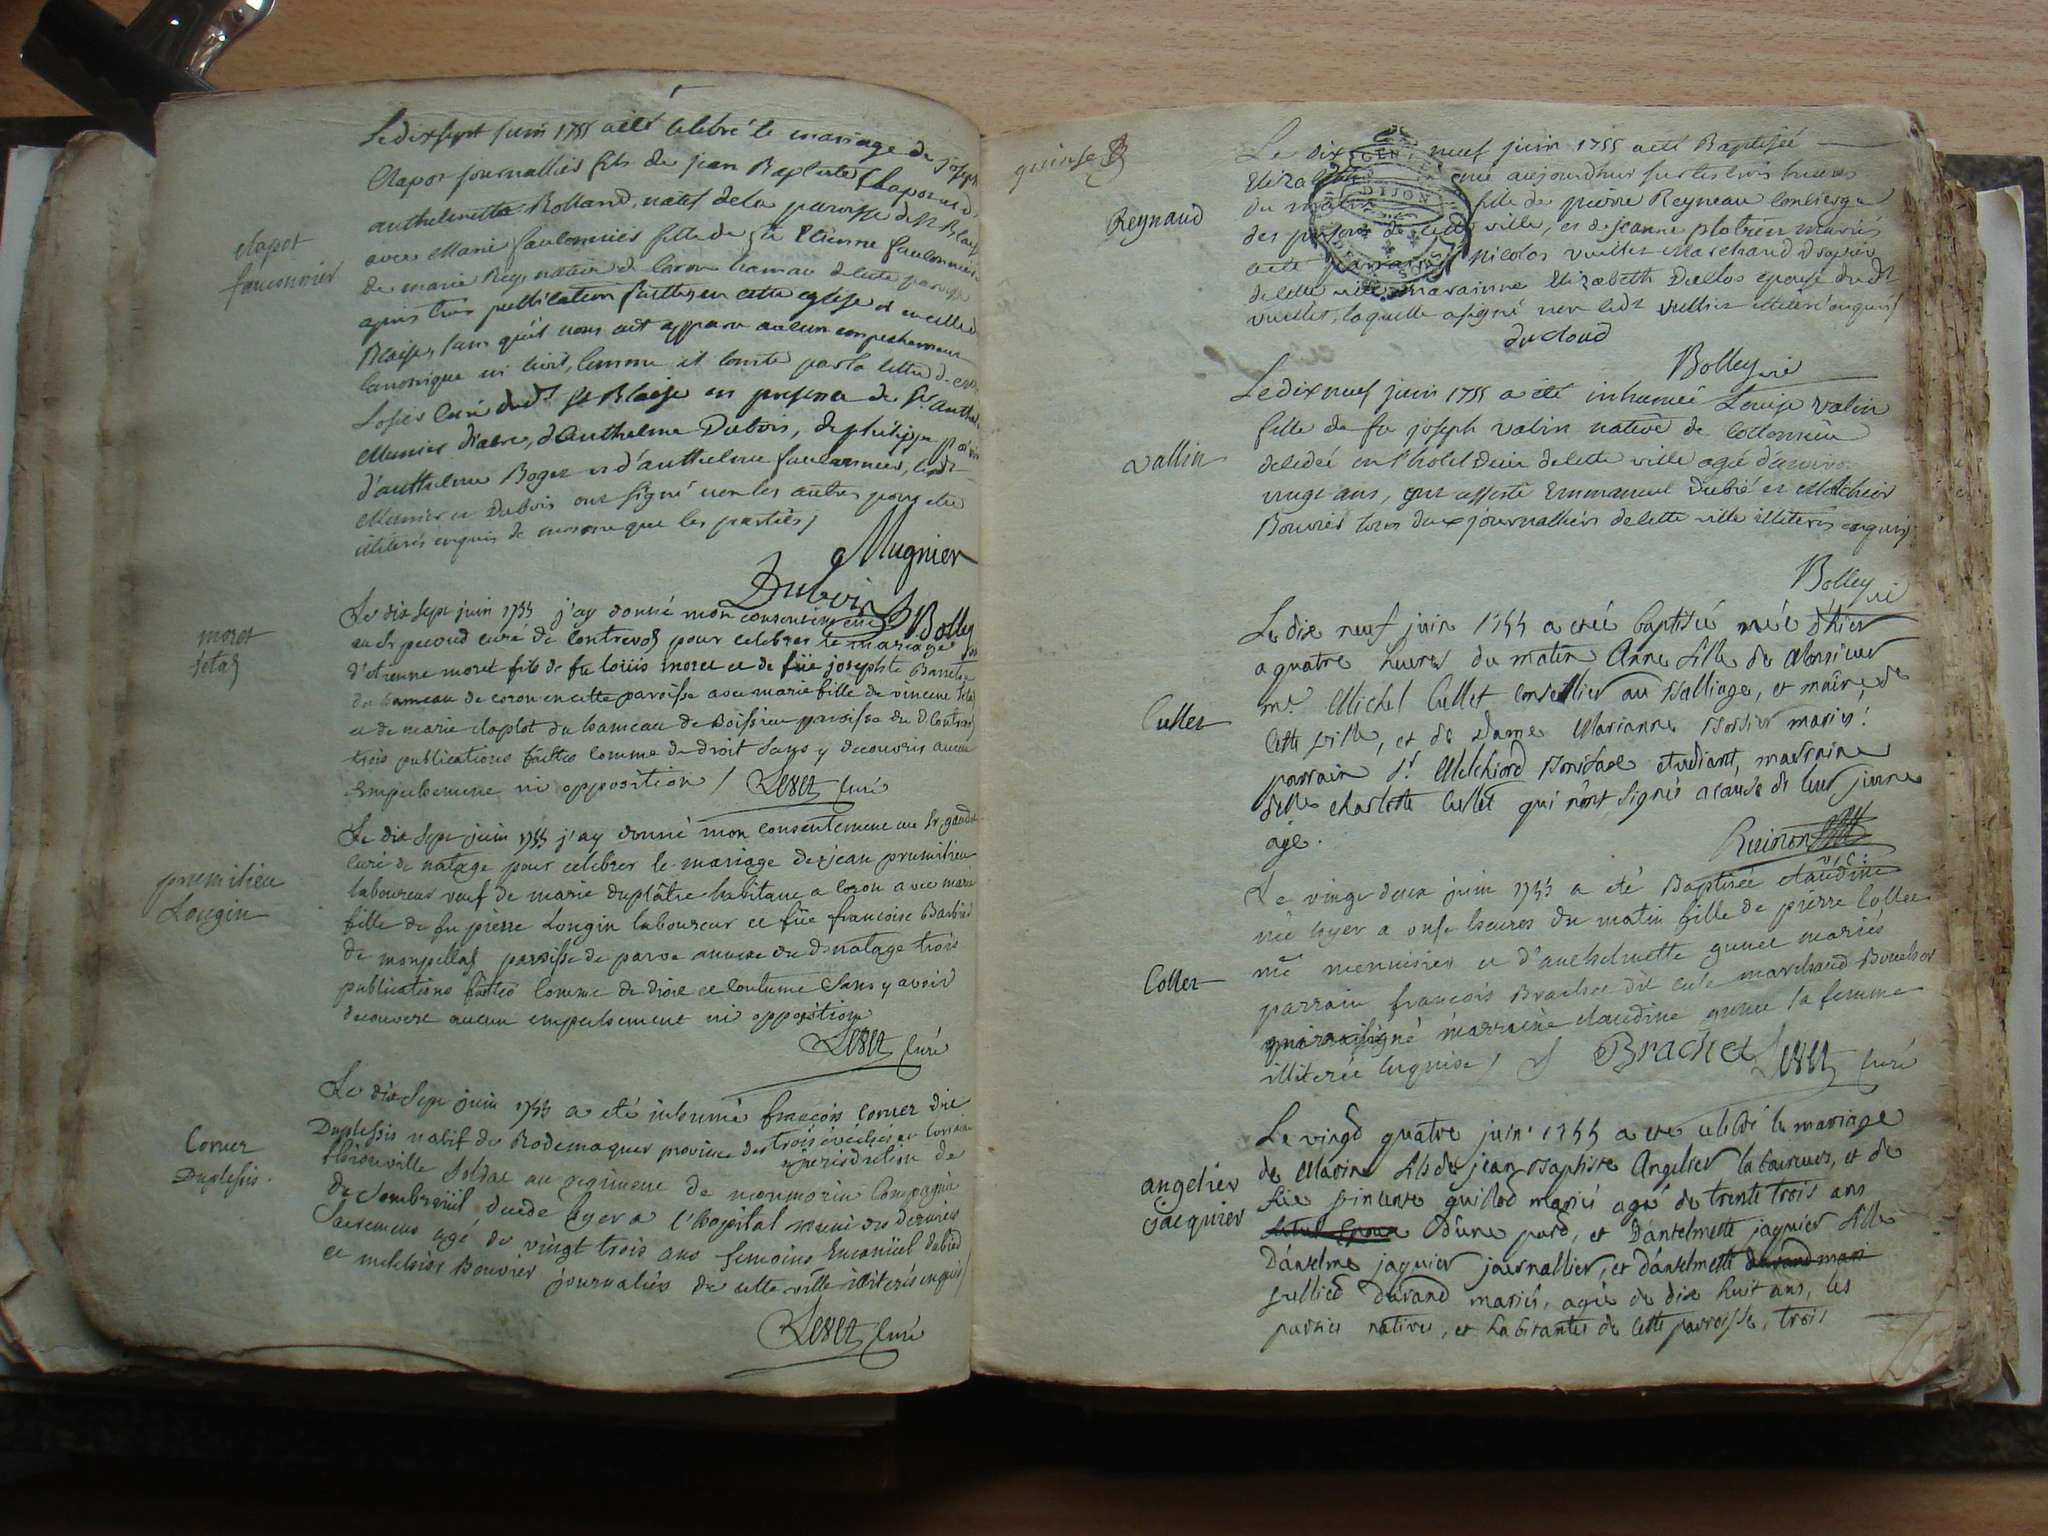 Le dix sept juin 1755 a eté celebré le mariage de joseph
Clapot journallier fils de jean Baptiste Clapot et d'
anthelmette Rolland, natif de la paroisse de St Blaise
avec Marie fauconnier fille de fû Etienne fauconnier
de marie Rey, native de hameau de cette paroisse
apres trois publication faittes en cette eglise et en celle de
Blaise, sans qu'il nous ait apparu aucun empechement
canonique ni civil, comme il conste par la lettre de
curé dudt St Blaise en presence de Sr anthe
Munier d'anthelme Dubois, de philippe
d'anthelme Roger et d'anthelme fauconnier, ledt
Munier et Dubois ont signé non les autres pour etre
illiterés enquis de meme que les parties
clapot
fauconnier
Mugnier
Dubois Bolley
Le dix sept juin 1755 j'ay donné mon consentement
au Sr curé de Contrevoz pour celebrer le mariage
d'etienne moret fils de fu loüis moret et de füe josephte
du hameau de coron en cette paroisse avec marie fille de vincent
et de marie claplot du hameau de Boissieu paroisse du d. Contrevoz
trois publications faittes comme de droit sans y decouvrir aucun
empechement ni opposition / curé
moret
Le dix sept juin 1755 j'ay donné mon consentement au Sr
curé de natage pour celebrer le mariage de jean prumilieu
laboureur veuf de marie duplâtre habitant a coron avec marie
fille de fu pierre Longin laboureur et füe francoise Barbier
de monpellaz paroisse de parve annexe du d. natage trois
publications faittes comme de droit et coutume sans y avoir
decouvert aucun empechement ni opposition
curé
prumilieu
Longin
Le dix sept juin 1755 a eté inhumé françois Cornet dit
Duplessis natif de Rodemaquer province des trois évéchés en lorraine
jurisdiction de
thionville soldat au regiment de monmorin Compagnie
de Sombreüil, decedé hyer a l'hopital muni des derniers
sacremens agé de vingt trois ans temoins Emanüel dubied
et melchior Bouvier journaliers de cette ville illiterés enquis /
curé
Cornet
Duplessis.
quinse
Le dix neuf juin 1755 a eté Baptisée
Elizabeth née aujourdhui sur les trois heures
du matin fille de pierre Reyneau concierge
des prisons de cette ville, et de jeanne mariés
a eté parrain Nicolas vuillet Marchand drapier
de cette ville maraine Elizabeth Duclos epouse dudt
vuillet, laquelle a signé non ledt vuillet illiteré enquis /
ducloud
Bolley vic
Reynaud
DIJON
Le dix neuf juin 1755 a été inhumée Louise valin
fille de fu joseph valin native de
decedée en l'hotel Dieu de cette ville agée d'environ
vingt ans, ont assisté Emmanuel Dubié et Melchior
Bouvier tous deux journalliers de cette ville illiterés enquis /
Bolley vic
vallin
Le dix neuf juin 1755 a eté baptisée née d'hier
a quatre heures du matin Anne fille de Monsieur
me Michel Cullet conseillier au Balliage, et maire de
cette ville, et de Dame Marianne mariés!
parrain Sr Melchiord Bonifare etudiant, marraine
delle charlotte Cullet qui n'ont signés a cause de leur jeune
age.
vic:
Cullet
Le vingt deux juin 1755 a eté Baptisée claudine
née hyer a onse heures du matin fille de pierre Collet
me menuisier et d'anthelmette mariés
parrain françois Brachet dit marchand Boucher
qui a signé marraine claudine la femme
illiterée enquise / Brachet curé
Collet
Le vingt quatre juin 1755 a eté celebré le mariage
de Marin fils de jean Baptiste Angelier laboureur, et de
füe vincente guillod mariés agé de trente trois ans
d'une part, et D'antelmette jaquier fille
D'antelme jaquier journallier, et d'antelmette
Durand mariés, agée de dix huit ans, les
parties natives, et habitantes de cette parroisse, trois
angelier
jacquier